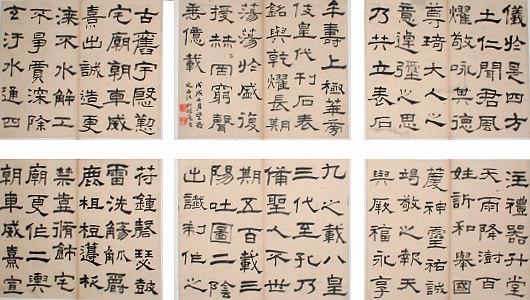 儀於是四方
土仁聞君風
燿敬咏其德
尊琦大人之
意逴彌之思
乃共立表石
牟壽上極華胥
伎皇代刊石表
銘與乾燿長期
蕩蕩於盛復
授赫罔窮聲
垂億載
古舊宇殷勤
宅廟朝車威
熹出誠造更
漆不水解工
不爭賈深除
玄汙水通四
注禮器升堂
天雨降澍百
姓訢和舉國
蒙神靈祐誠
竭敬之報天
與厥福永享
九之載八皇
三代至孔乃
備聖人不世
期五百載三
陽吐圖二陰
出讖制作之
符鍾磬瑟鼓
雷洗觴觚爵
鹿柤梪籩柉
禁壺脩飾宅
廟更作二輿
朝車威熹宣